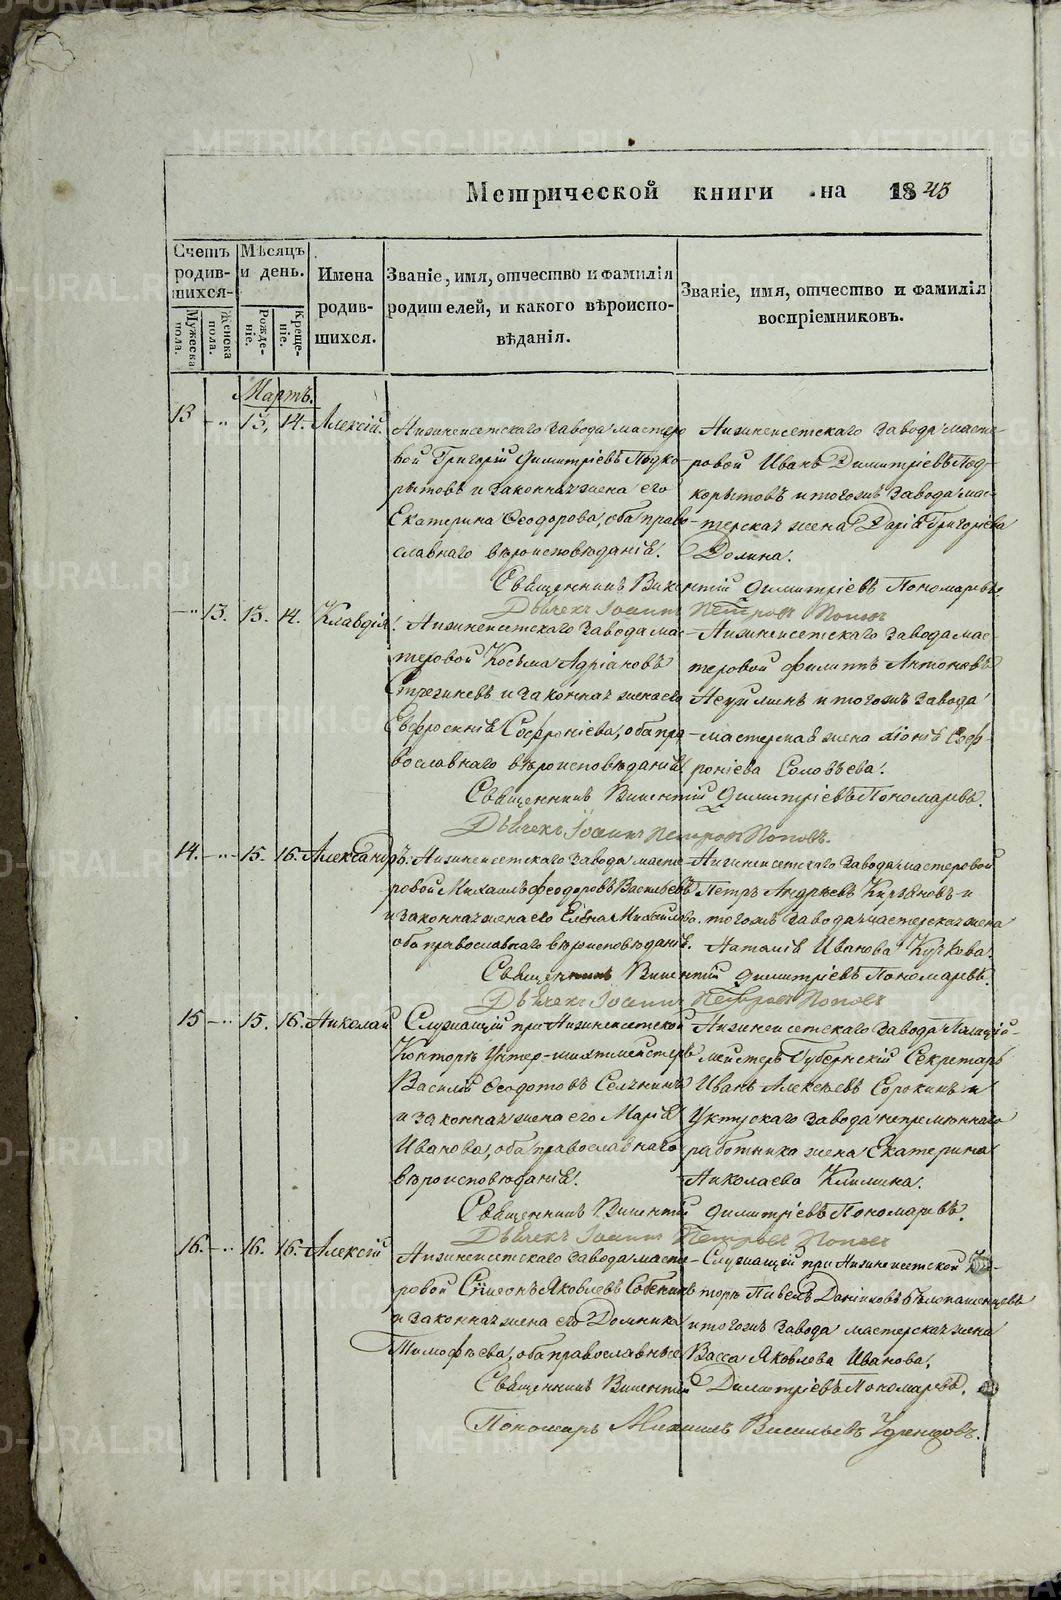 Метрической книги на 1843
Счетъ родив-шихся.
Мужеска пола.
Женска пола.
Мѣсяцъ и день.
Рожде-ніе.
Креще-ніе.
Имена родив-шихся.
Званіе, имя, отчество и фамилія родителей, и какого вѣроиспо-вѣданія.
Званіе, имя, отчество и фамилія воспріемниковъ.
Мартъ.
13 - 13. 14. Алексій.
Нижнеисетскаго завода масте-
ровой Григорій Димитріевъ Подко-
рытовъ и законная жена его
Екатерина Ѳеодорова, оба право-
славнаго вѣроисповѣданія.
Нижнеисетскаго завода масте-
ровой Иванъ Димитріевъ Под-
корытовъ и тогожъ завода мас-
терская жена Дарія Григоріева
Долина.
Священникъ Викентій Димитріевъ Пономаревъ.
Дьячекъ Іоаннъ Петровъ Поповъ
- 13. 13. 14. Клавдія.
Нижнеисетскаго завода мас-
теровой Косьма Адріановъ
и законная жена его
Евфросинія Софроніева, оба пра-
вославнаго вѣроисповѣданія.
Нижнеисетскаго завода мас-
теровой Филиппъ Антоновъ
и тогожъ завода
мастерская жена Соф-
роніева Соловьева.
Священникъ Викентій Димитріевъ Пономаревъ.
Дьячекъ Іоаннъ Петровъ Поповъ.
14. - 15. 16. Александръ.
Нижнеисетскаго завода масте-
ровой Михаилъ Феодоровъ Васильевъ
и законная жена его Елена Михайлова
оба православнаго вѣроисповѣданія.
Нижнеисетскаго завода мастеровой
Петръ Андреевъ и
тогожъ завода мастерская жена
Наталія Иванова Кучкова.
Священникъ Викентій Димитріевъ Пономаревъ.
Дьячекъ Іоаннъ Петровъ Поповъ
15 - 15. 16. Николай
Служащій при Нижнеисетской
Конторѣ Унтер-шихтмейстеръ
Василій Ѳеодотовъ
и законная жена его Марія
Иванова, оба православнаго
вѣроисповѣданія.
Нижнеисетскаго завода
мейстеръ Губернскій Секретарь
Иванъ Алексѣевъ Сорокинъ и
Уктусскаго завода непремѣннаго
работника жена Екатерина
Николаева Климина.
Священникъ Викентій Димитріевъ Пономаревъ.
Дьячекъ Іоаннъ Петровъ Поповъ
16. - 16. 16. Алексій
Нижнеисетскаго завода масте-
ровой Сімеонъ Яковлевъ
и законная жена его Домника
Тимофѣева, оба православные
Служащій при Нижнеисетской
торѣ Павелъ Даніиловъ Бѣлопашенцевъ
и тогожъ завода мастерская жена
Васса Яковлева Иванова.
Священникъ Викентій Димитріевъ Пономаревъ.
Пономарь Михаилъ Васильевъ Удинцовъ.
METRIKI.GASO-URAL.RU